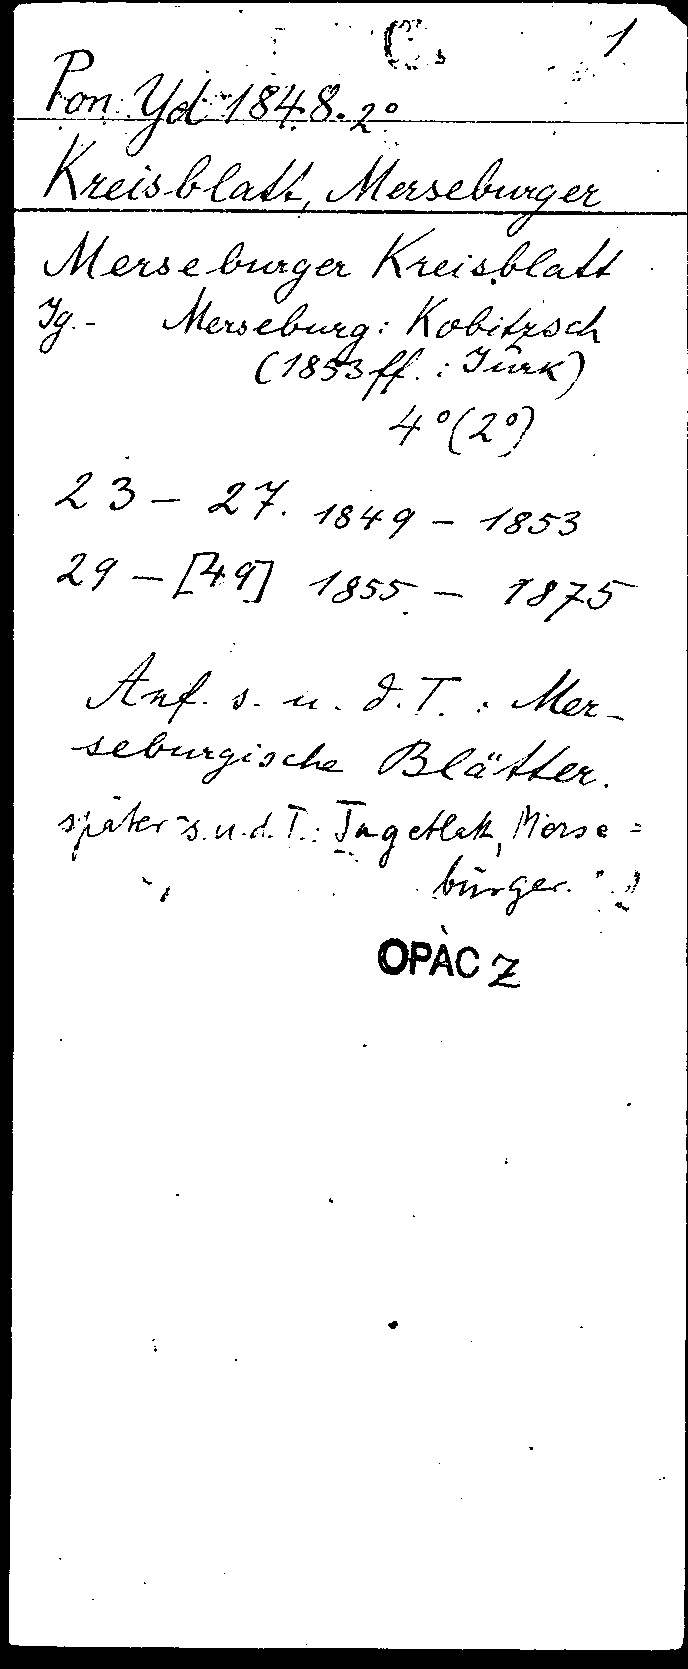 C. 1
Pon Yd 1848. 2°
Kreisblatt, Merseburger
Merseburger Kreisblatt
Jg. - Merseburg: Kobitzsch
(1853 ff.: Jurk)
4° (2°)
23 - 27. 1849 - 1853
29 - [49] 1855 - 1875
Anf. s. u. d. T. : Mer-
seburgische Blätter.
später s.u.d.T.: Tageblatt, Merse=
burger.
OPAC Z